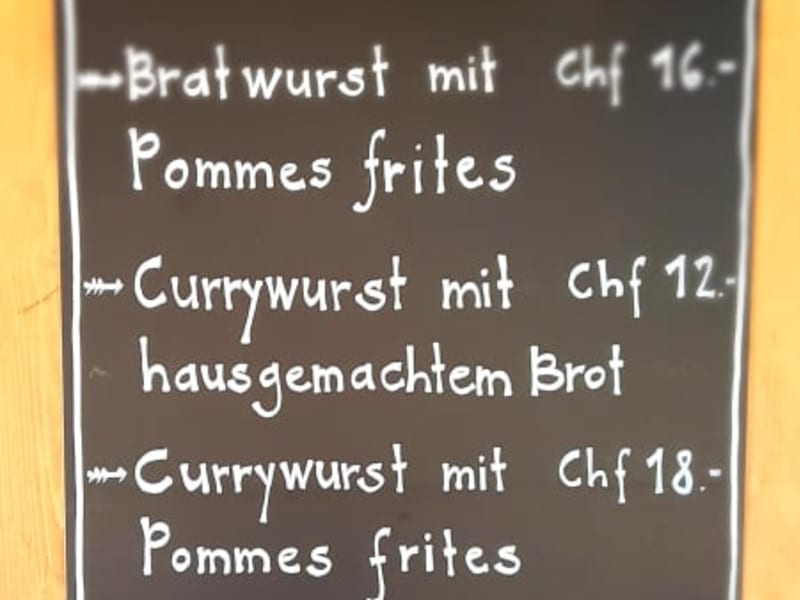 Bratwurst mit Chf 16.-
Pommes frites
Currywurst mit Chf 12.-
hausgemachtem Brot
Currywurst mit Chf 18.-
Pommes frites